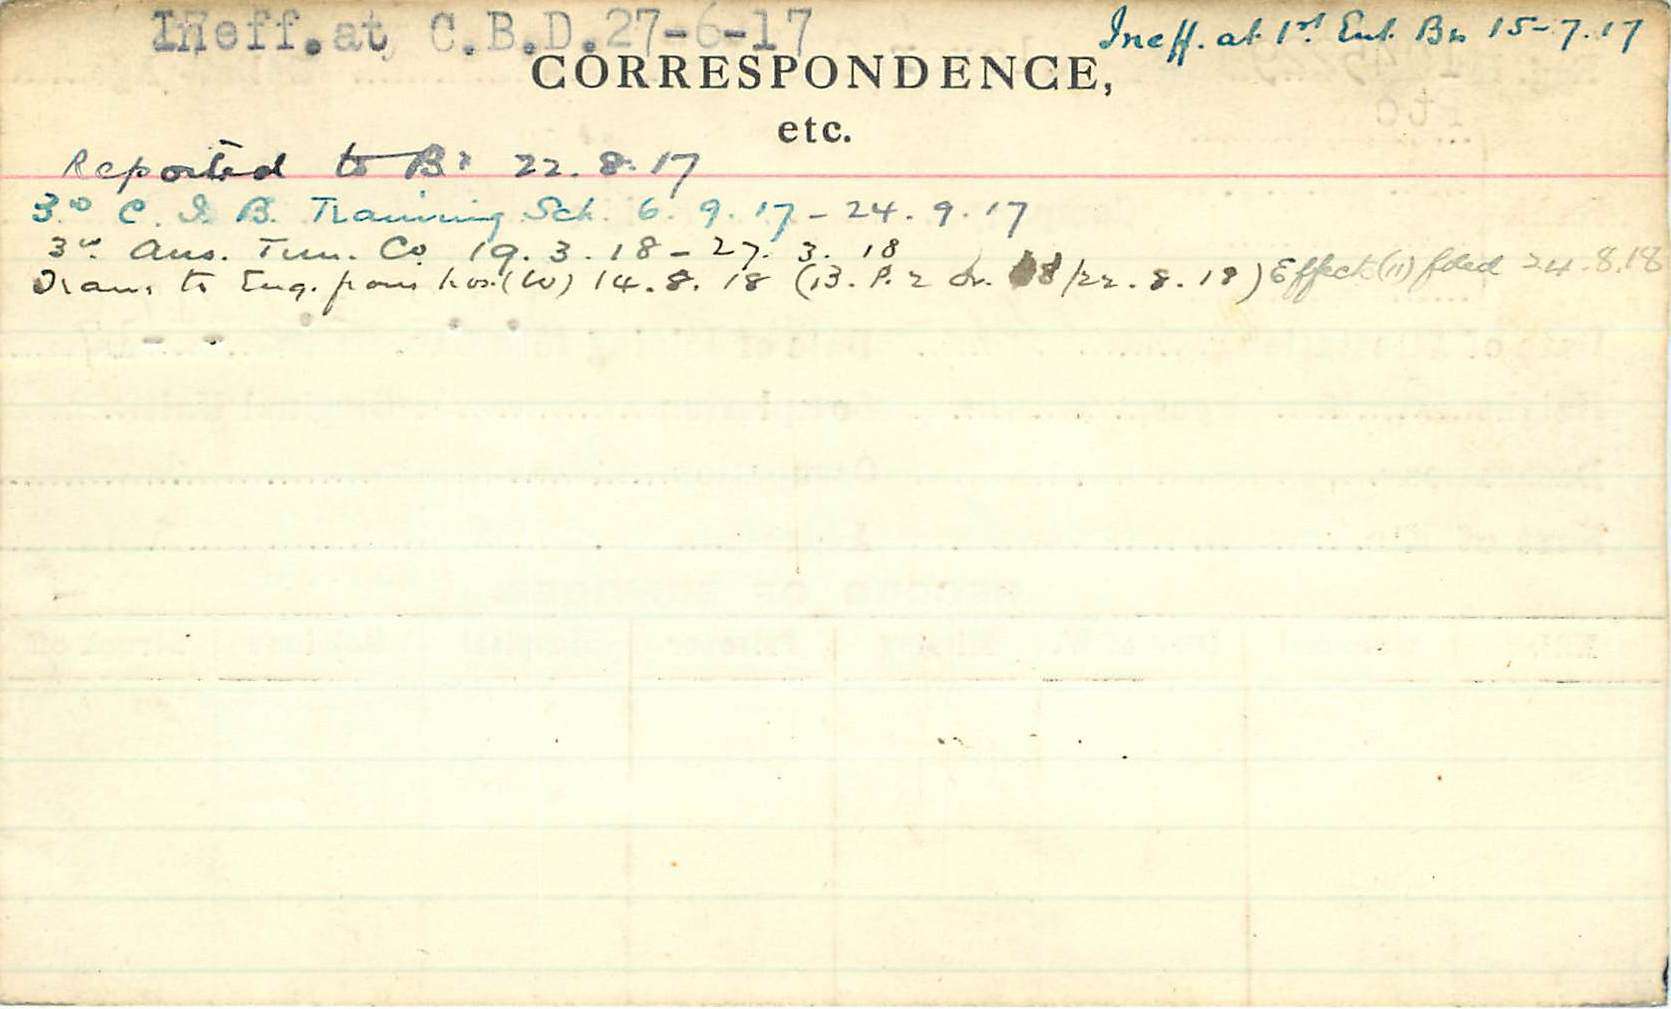 Ineff. at C.B.D. 27-6-17
Ineff. at 1st Ent. Bn 15-7.17
CORRESPONDENCE,
etc.
Reported to Bn 22.8.17
3rd C. I. B. Training Sch. 6.9.17-24.9.17
3rd Aus. Tun. Co 19.3.18-27.3.18
Trans to Eng. from hos. (W) 14.8.18 (B.P. 2 Or. /22.8.18) Effects (11) filed 24.8.18